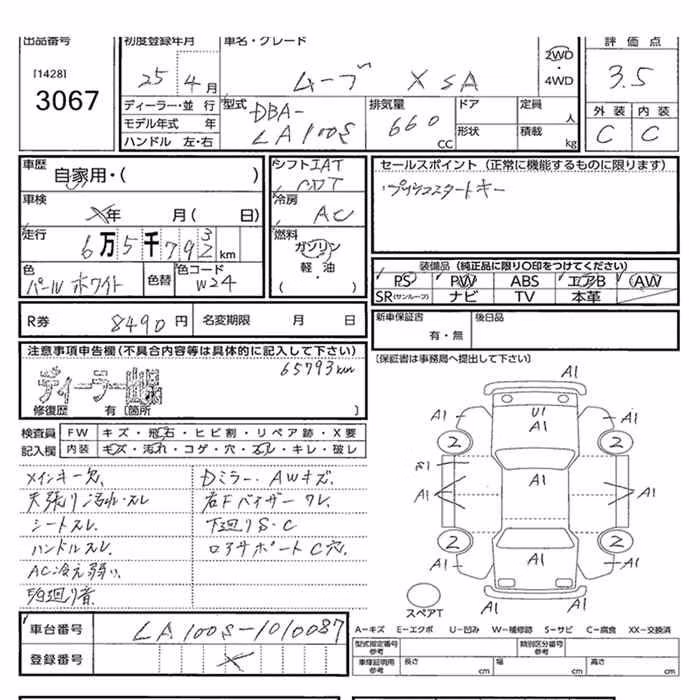 出品番号 初度登録年月 車名・グレード 評価点
[1428]
3067
25年 4月 ムーブ X SA 2WD・4WD 3.5
ディーラー・並行 型式 DBA-LA100S 排気量 660 CC ドア 定員 人 外装 内装
モデル年式 年 形状 積載 kg C C
ハンドル 左・右
車歴 自家用・( ) シフト IAT CDT セールスポイント (正常に機能するものに限ります)
車検 X年 月( 日) 冷房 AC プッシュスタートキー
走行 6万5千793 km 燃料 ガソリン・軽油( )
色 パールホワイト 色替 色コード W24 装備品 (純正品に限り〇印をつけてください)
PS PW ABS エアB AW
SR(サンルーフ) ナビ TV 本革
R券 8490円 名変期限 月 日 新車保証書 有・無 後日品
[保証書は事務局へ提出して下さい]
注意事項申告欄(不具合内容等は具体的に記入して下さい)
65793km
ディーラー
修復歴 有 [箇所 ]
検査員 FW キズ・飛石・ヒビ割・リペア跡・X要
記入欄 内装 キズ・汚れ・コゲ・穴・スレ・キレ・破レ
メインキー欠、 Dミラー、AWキズ、
天張り汚れ・スレ 右Fバイザーワレ、
シートスレ、 下廻りS・C
ハンドルスレ、 ロアサポートC穴、
AC冷え弱い、
A1
A1 U1 A1 A1
2 2
A1 A1 A1 A1
2 2
A1 A1 A1
A1
スペアT
車台番号 LA100S-1010087
A-キズ E-エクボ U-凹み W-補修跡 S-サビ C-腐食 XX-交換済
登録番号 X
型式指定番号 参考 類別区分番号 参考
車庫証明用 参考 長さ cm 幅 cm 高さ cm